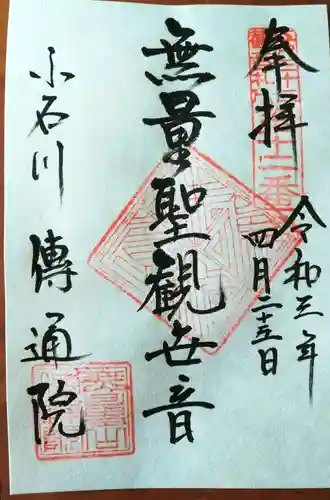 奉拝
令和三年
四月二十五日
無量聖観世音
小石川 傳通院